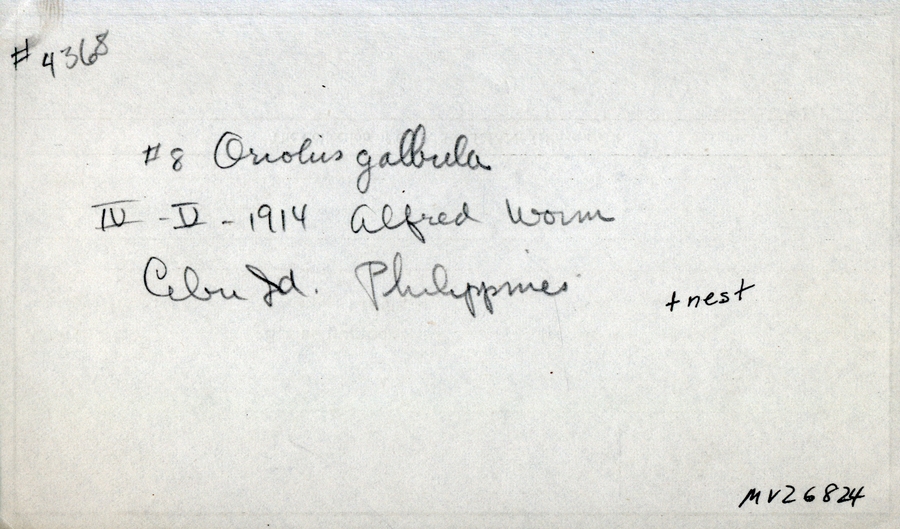 # 4368
# 8 Oriolus galbula
IV - V - 1914 Alfred Worm
Cebu Id. Philippines
+ nest
MVZ 6824